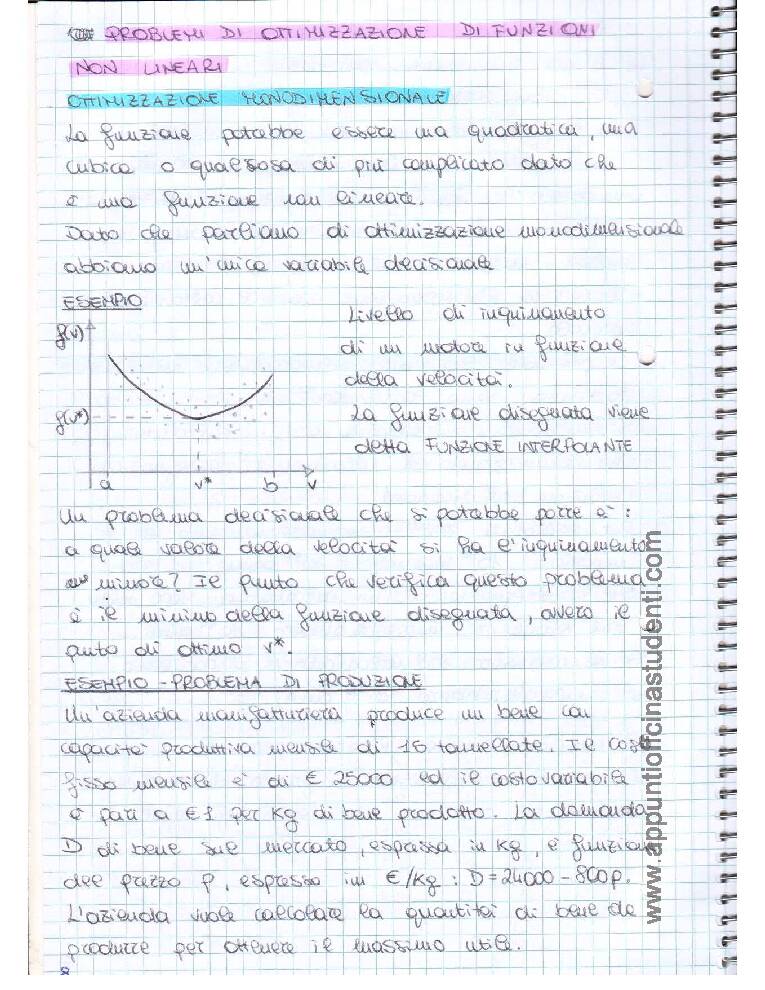 PROBLEMI DI OTTIMIZZAZIONE DI FUNZIONI
NON LINEARI
OTTIMIZZAZIONE MONODIMENSIONALE
La funzione potrebbe essere una quadratica, una
cubica o qualcosa di più complicato dato che
è una funzione non lineare.
Dato che parliamo di ottimizzazione monodimensionale
abbiamo un'unica variabile decisionale
ESEMPIO
f(v)
f(v*)
a v* b v
Livello di inquinamento
di un motore in funzione
della velocità.
La funzione disegnata viene
detta FUNZIONE INTERPOLANTE
Un problema decisionale che si potrebbe porre è:
a quale valore della velocità si ha l'inquinamento
minore? Il punto che verifica questo problema
è il minimo della funzione disegnata, ovvero il
punto di ottimo v*.
ESEMPIO - PROBLEMA DI PRODUZIONE
Un'azienda manifatturiera produce un bene con
capacità produttiva mensile di 16 tonnellate. Il costo
fisso mensile è di € 25000 ed il costo variabile
è pari a €1 per Kg di bene prodotto. La domanda
D di bene sul mercato, espressa in Kg, è funzione
del prezzo p, espresso in €/Kg: D = 24000 - 800p.
L'azienda vuole calcolare la quantità di bene da
produrre per ottenere il massimo utile.
8
www.appuntiofficinastudenti.com